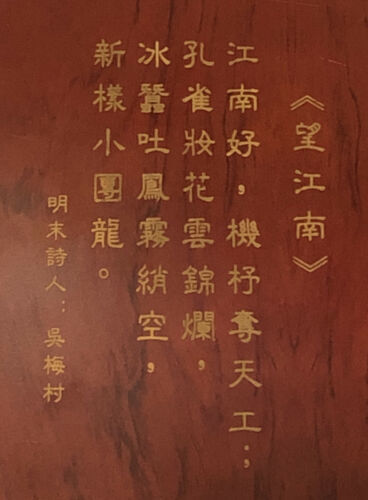 《望江南》
江南好，機杼奪天工；
孔雀妝花雲錦爛，
冰蠶吐鳳霧綃空，
新樣小團龍。
明末詩人：吳梅村